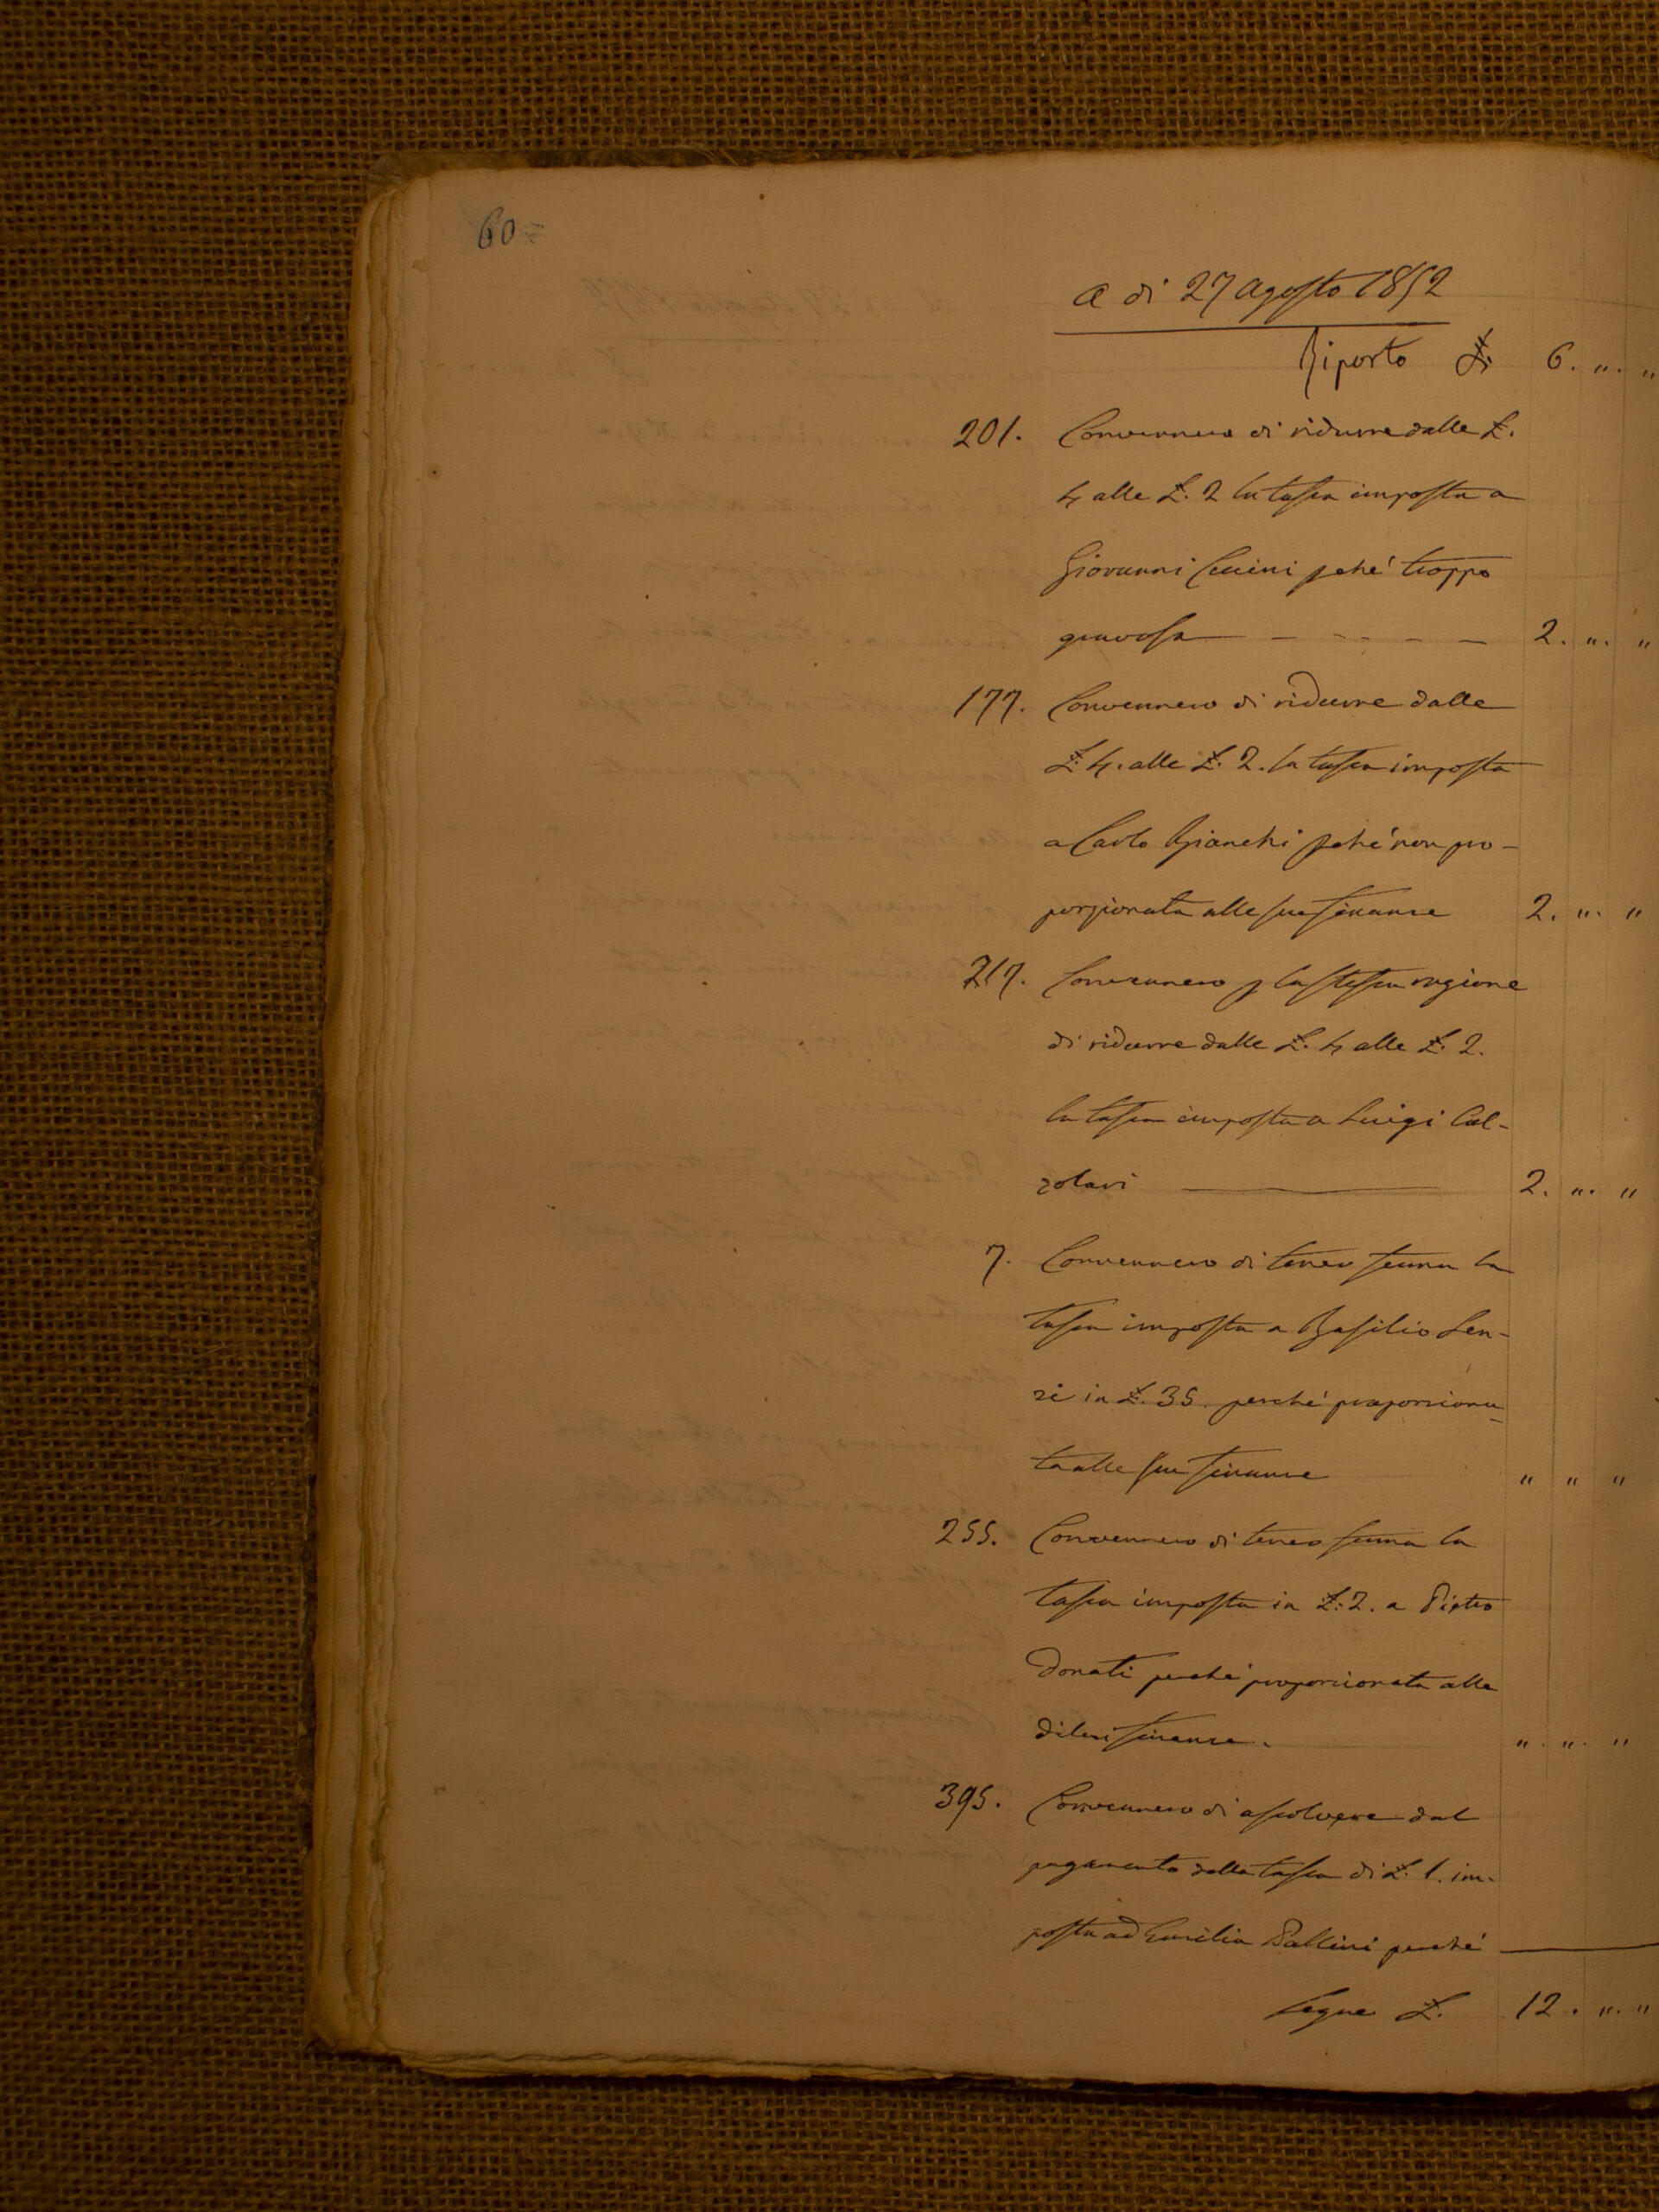 60=
a di 27 Agosto 1852
Riporto £. 6. „. „
201. Convennero di ridurre dalle £.
4 alle £. 2 la tassa imposta a
Giovanni pché troppo
gravosa — — — — — 2. „. „
177. Convennero di ridurre dalle
£. 4. alle £. 2. la tassa imposta
a Carlo Bianchi pché non pro-
porzionata alle sue finanze 2. „. „
217. Convennero p la stessa ragione
di ridurre dalle £. 4 alle £. 2.
la tassa imposta a Luigi Cal-
zolari — 2. „. „
7. Convennero di tener ferma la
tassa imposta a Basilio Len-
zi in £. 35. perché proporziona-
ta alle sue finanze „ „ „
255. Convennero di tener ferma la
tassa imposta in £. 2. a Pietro
Donati perché proporzionata alle
di lui finanze. „. „. „
395. Convennero di assolvere dal
pagamento della tassa di £. 1. im-
posta ad Emilia Pallini perché
Segue £. 12. „. „